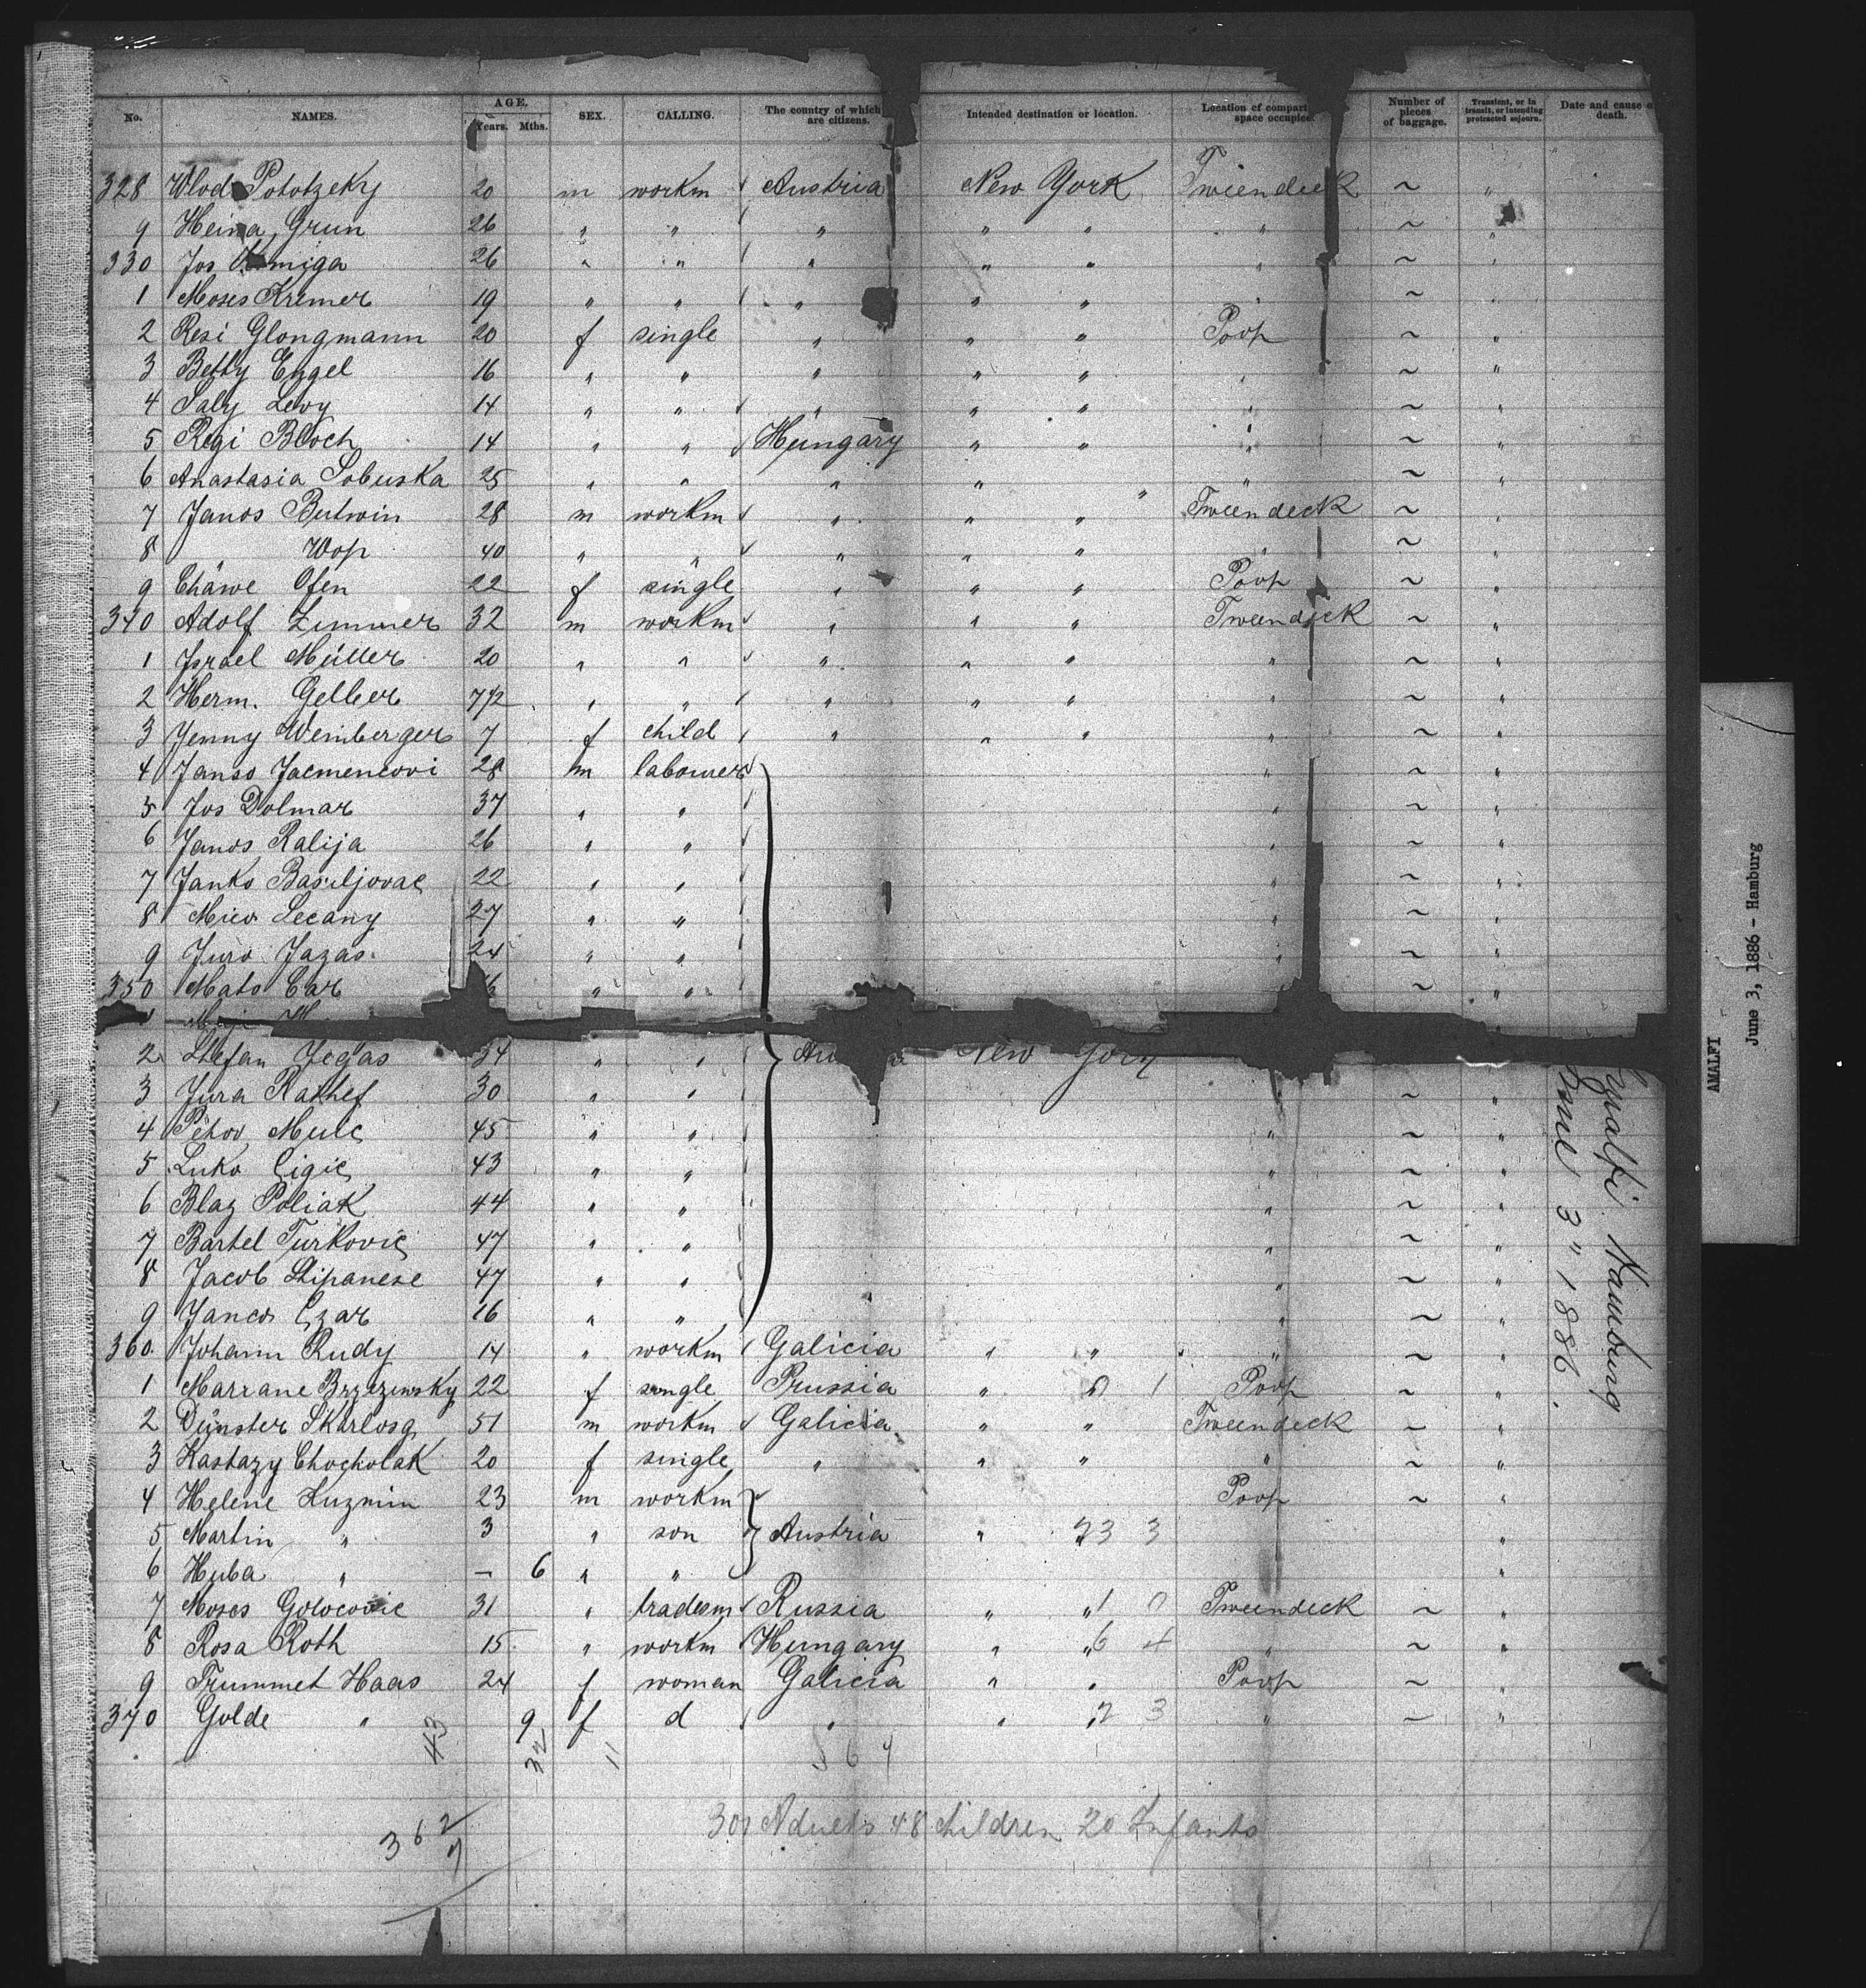 No. NAMES. AGE. Years. Mths. SEX. CALLING. The country of which are citizens. Intended destination or location. Location of compart space occupied Number of pieces of baggage. Transient, or in transit, or intending protracted sojourn. Date and cause of death.
328 Wlod Pototzeky 20 m workm Austria New York Tweendeck ~ "
9 Heina Grun 26 " " " " " " ~ "
330 Jos miga 26 " " " " " " ~ "
1 Moses Kremer 19 " " " " " " ~ "
2 Resi Glongmann 20 f single " " " Poop ~ "
3 Betty Engel 16 " " " " " " ~ "
4 Saly Levy 14 " " " " " " ~ "
5 Regi Bloch 14 " " Hungary " " " ~ "
6 Anastasia Sobuska 25 " " " " " " ~ "
7 Janos Butwin 28 m workm " " " Tweendeck ~ "
8 " Wop 40 " " " " " " ~ "
9 Chäwe Ofen 22 f single " " " Poop ~ "
340 Adolf Zimmer 32 m workm " " " Tweendeck ~ "
1 Israel Müller 20 " " " " " " ~ "
2 Herm. Gelber 7 1/2 " " " " " " ~ "
3 Jenny Weinberger 7 f child " " " " ~ "
4 Janso Jacmencovi 28 m labourer " ~ "
5 Jos Dolmar 37 " " " ~ "
6 Janos Ralija 26 " " " ~ "
7 Janko Basiljovac 22 " " " ~ "
8 Mico Secany 27 " " " ~ "
9 Juro Jagas 24 " " " ~ "
350 Mato Car 6 " " " ~ "
2 Stefan Jegas 34 " " New York
3 Jura Rathef 30 " " ~ "
4 Petrov Mulc 45 " " " ~ "
5 Luko Cigic 43 " " " ~ "
6 Blaz Poliak 44 " " " ~ "
7 Bartel Turkovic 47 " " " ~ "
8 Jacob Stipanese 47 " " " ~ "
9 Janco Czar 16 " " " ~ "
360 Johann Rudy 14 " workm Galicia " " " ~ "
1 Marrane Brzezinsky 22 f single Prussia " 0 1 Poop ~ "
2 Dünster Skarlosg 51 m workm Galicia " " Tweendeck ~ "
3 Kastazy Chocholak 20 f single " " " " ~ "
4 Helene Kuzmin 23 m workm Poop ~ "
5 Martin " 3 " son Austria " " 23 3 "
6 Huba " – 6 " " "
7 Moses Golocovic 31 " tradesm Russia " " 1 0 Tweendeck ~ "
8 Rosa Roth 15 " workm Hungary " " 6 4 " ~ "
9 Trummet Haas 24 f woman Galicia " " Poop ~ "
370 Golde " 9 f d " " " 2 3 " ~ "
43 32 11 564
301 Adults 48 children 20 Infants
362
7
Amalfi Hamburg
June 3" 1886.
AMALFI
June 3, 1886 - Hamburg